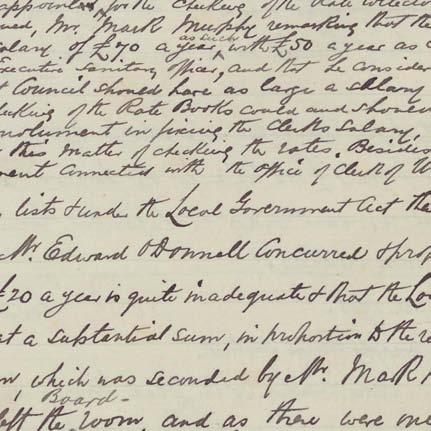 appointed for the checking of the Rate Collector
ued, Mr. Mark Murphy remarking that the
salary of £70 a year as such with £50 a year as a
Executive Sanitary Officer, and that he consider
t Council should have as large a salary
checking of the Rate Books could and should
molument in fixing the Clerks Salary,
this matter of checking the rates. Besides
ment connected with the Office of Clerk of
, lists & under the Local Government Act the
Mr. Edward O'Donnell concurred & prop
£20 a year is quite inadequate & that the Loc
at a substantial sum, in proportion to the re
on, which was seconded by Mr. Mark
Board-
left the room, and as there were one